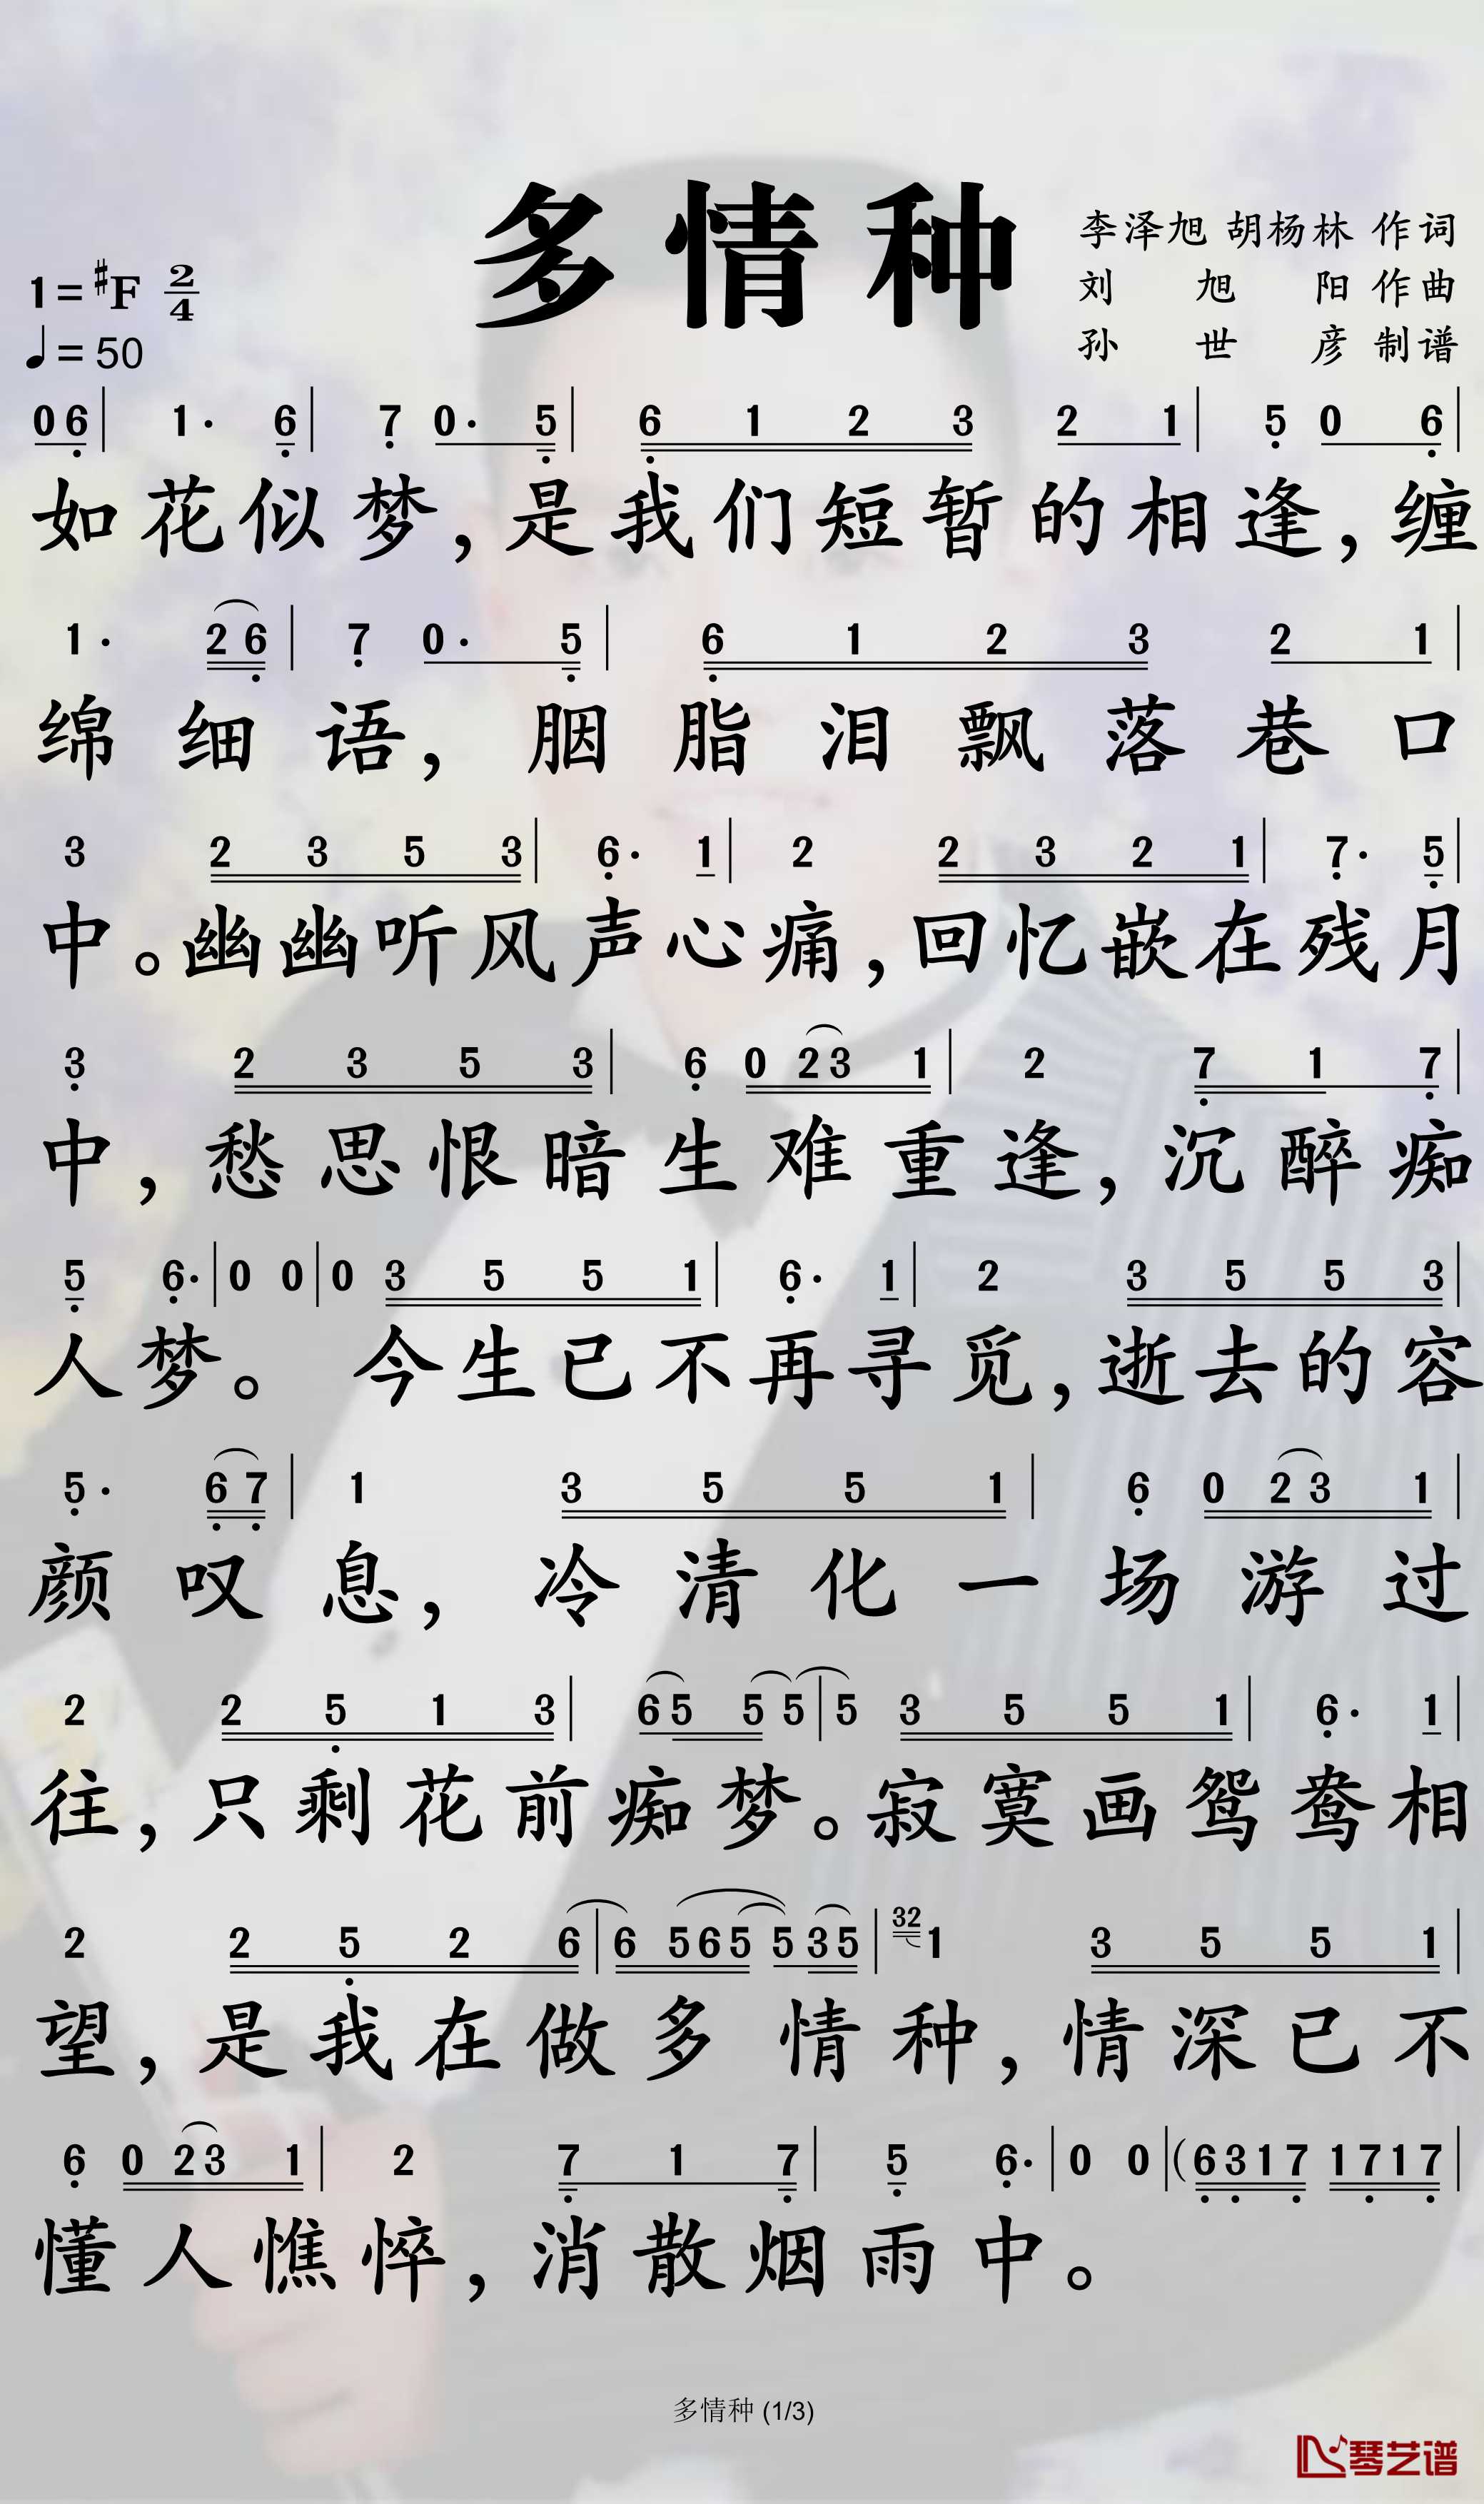 多情种
李泽旭 胡杨林 作词
刘旭阳 作曲
孙世彦 制谱
1=#F 2/4
♩=50
06| 1· 6| 7 0· 5| 6 1 2 3 2 1| 5 0 6|
如花似梦,是我们短暂的相逢,缠
1· 26| 7 0· 5| 6 1 2 3 2 1|
绵细语,胭脂泪飘落巷口
3 2 3 5 3| 6· 1| 2 2 3 2 1| 7· 5|
中。幽幽听风声心痛,回忆嵌在残月
3 2 3 5 3| 6 0 23 1| 2 7 1 7|
中,愁思恨暗生难重逢,沉醉痴
5 6·|0 0|0 3 5 5 1| 6· 1| 2 3 5 5 3|
人梦。今生已不再寻觅,逝去的容
5· 67| 1 3 5 5 1| 6 0 23 1|
颜叹息,冷清化一场游过
2 2 5 1 3| 65 5 5|5 3 5 5 1| 6· 1|
往,只剩花前痴梦。寂寞画鸳鸯相
2 2 5 2 6|6 565 5 35| 32 1 3 5 5 1|
望,是我在做多情种,情深已不
6 0 23 1| 2 7 1 7| 5 6·|0 0|(6317 1717|
懂人憔悴,消散烟雨中。
多情种 (1/3)
琴艺谱